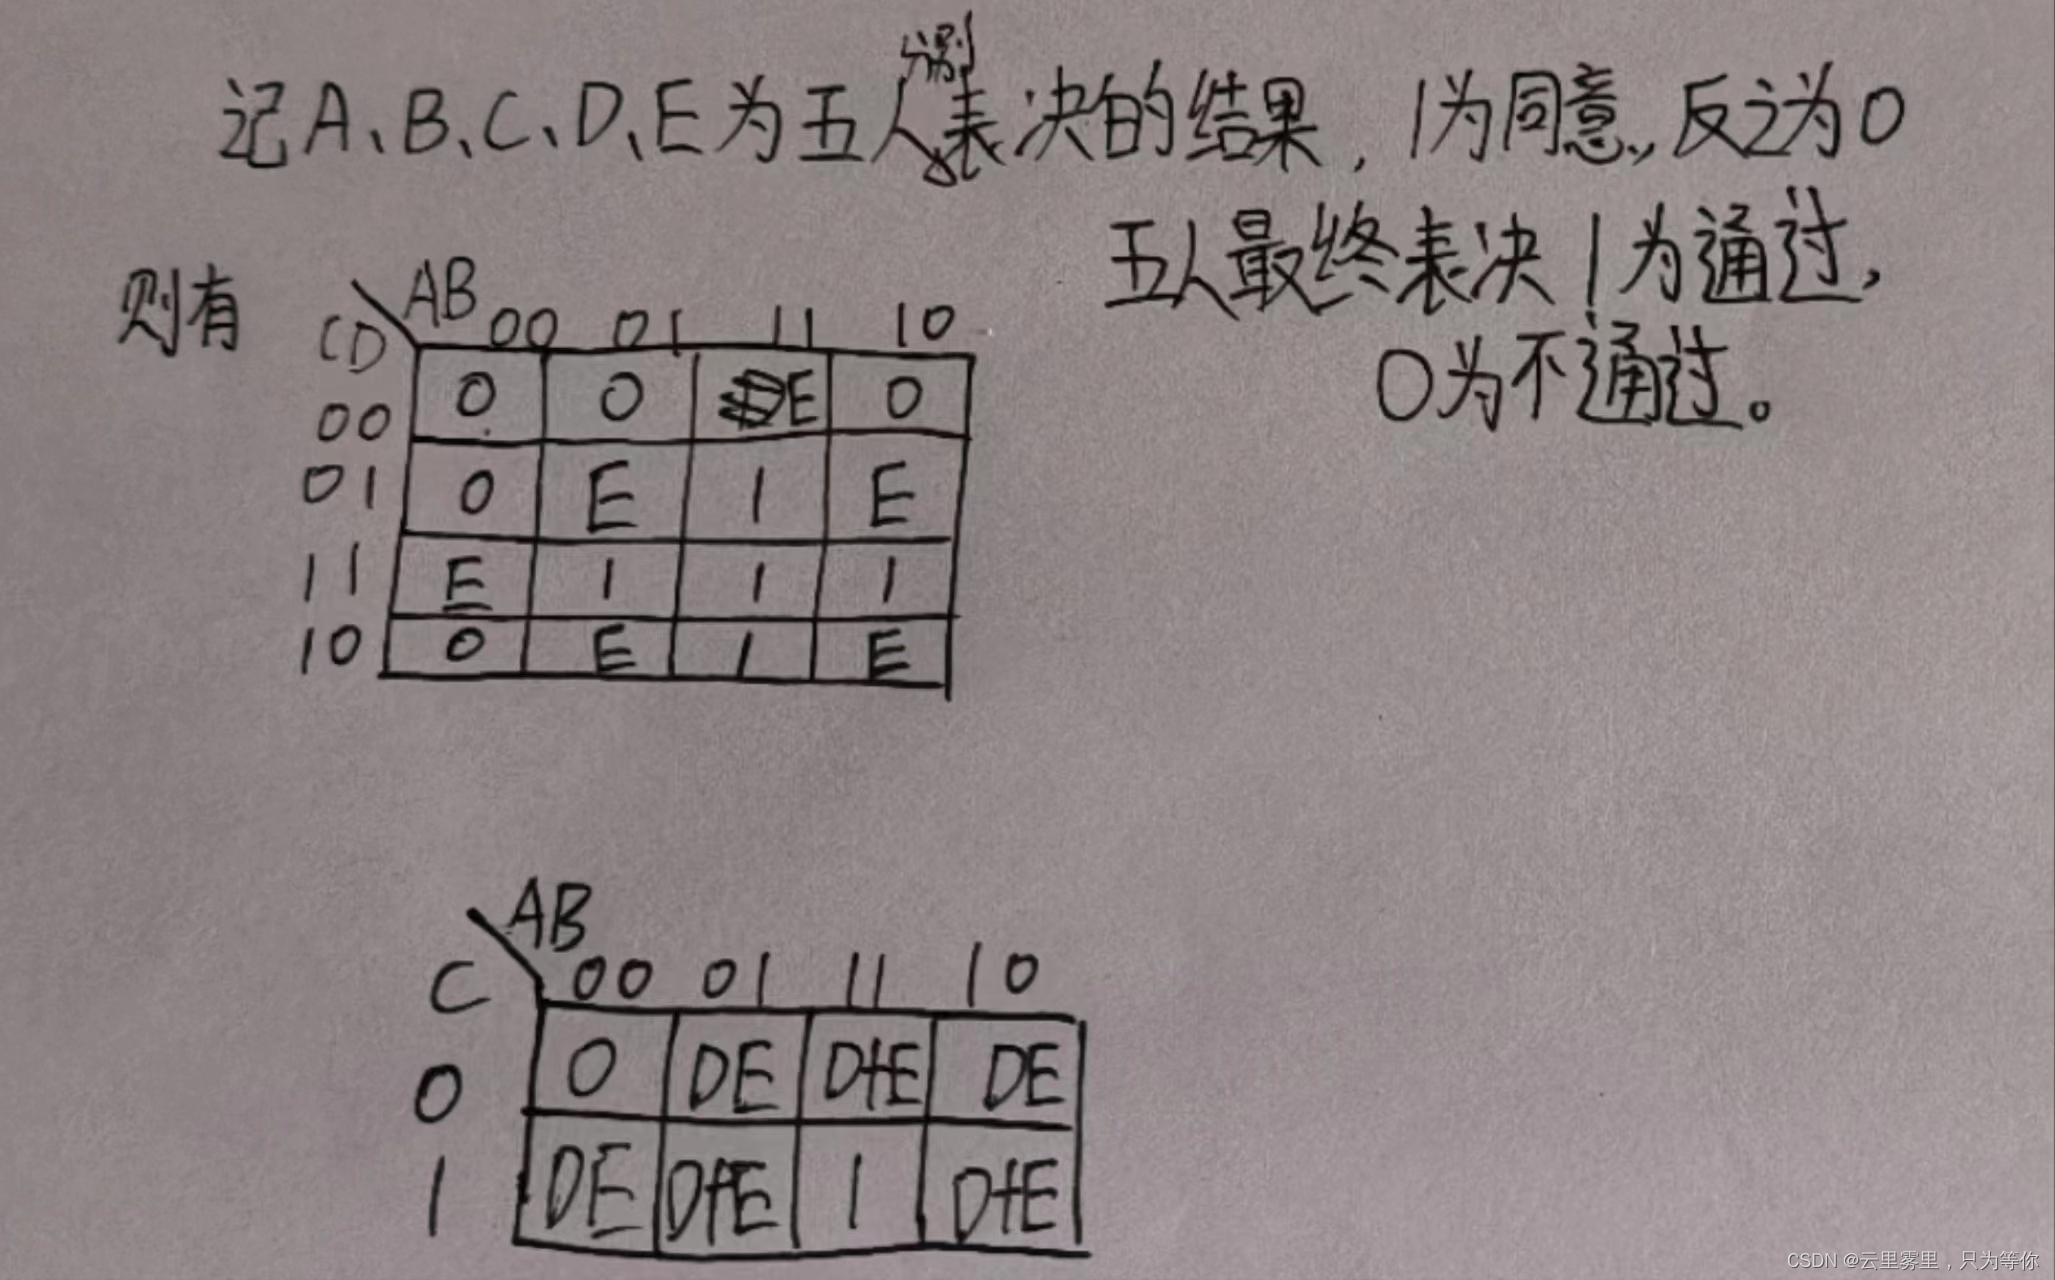 记A、B、C、D、E为五人分别表决的结果，1为同意，反之为0
五人最终表决1为通过，
0为不通过。
则有
AB
CD
00 01 11 10
00 0 0 E 0
01 0 E 1 E
11 E 1 1 1
10 0 E 1 E
AB
C
00 01 11 10
0 0 DE D+E DE
1 DE D+E 1 D+E
CSDN @云里雾里，只为等你